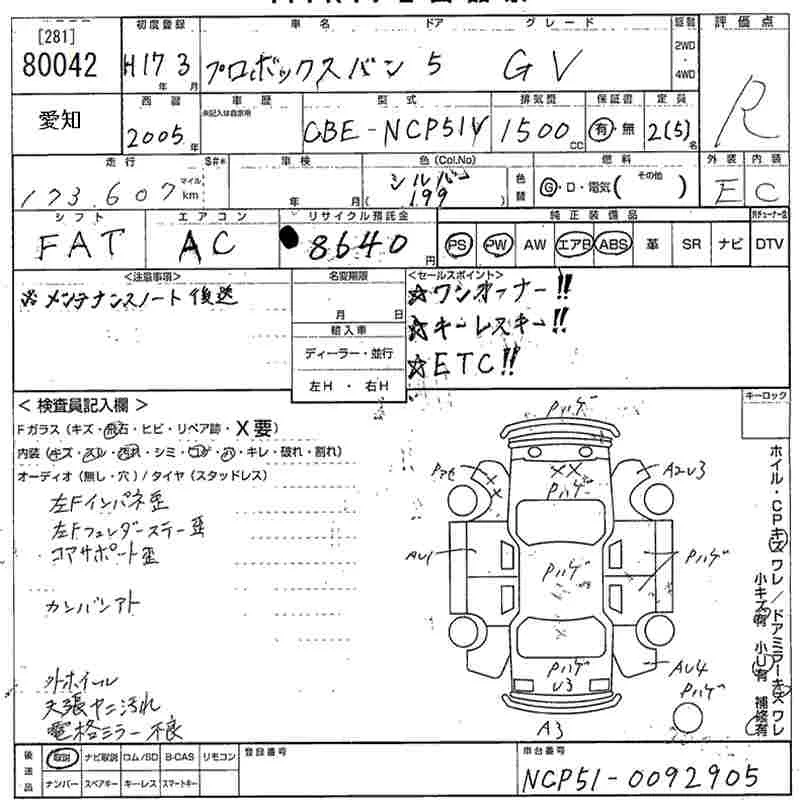 [281]
80042
初度登録
H17 年 3 月
車名 ドア グレード
プロボックスバン 5 GV
駆動
2WD
・
4WD
評価点
R
愛知
西暦
2005年
車歴
※記入は自家用
型式
CBE-NCP51V
排気量
1500 CC
保証書
有・無
定員
2(5)名
走行
173,607 マイル km
S#*
車検
年 月
色(Col.No)
シルバー
( 199 )
色替
燃料
G・D・電気( その他 )
外装 内装
E C
シフト
FAT
エアコン
AC
リサイクル預託金
8640 円
純正装備品
PS PW AW エアB ABS 革 SR ナビ DTV
<注意事項>
※メンテナンスノート後送
名変期限
月 日
輸入車
ディーラー・並行
左H ・ 右H
<セールスポイント>
☆ワンオーナー!!
☆キーレスキー!!
☆ETC!!
<検査員記入欄>
Fガラス(キズ・飛石・ヒビ・リペア跡・X要)
内装(キズ・スレ・汚れ・シミ・コゲ・穴・キレ・破れ・割れ)
オーディオ(無し・穴)/タイヤ(スタッドレス)
左Fインパネ歪
左Fフェンダーステー歪
コアサポート歪
カンバンアト
外ホイール
天張ヤニ汚れ
電格ミラー不良
キーロック
Pハゲ
XX
Pハゲ
A2U3
AU1
Pハゲ
Pハゲ
Pハゲ
U3
AU4
Pハゲ
A3
ホイル・CPキズワレ/ドアミラーキズワレ
小キズ有 小U有 補修有
後送品
取説 ナビ取説 ロム/SD B-CAS リモコン
ナンバー スペアキー キーレス スマートキー
登録番号
車台番号
NCP51-0092905